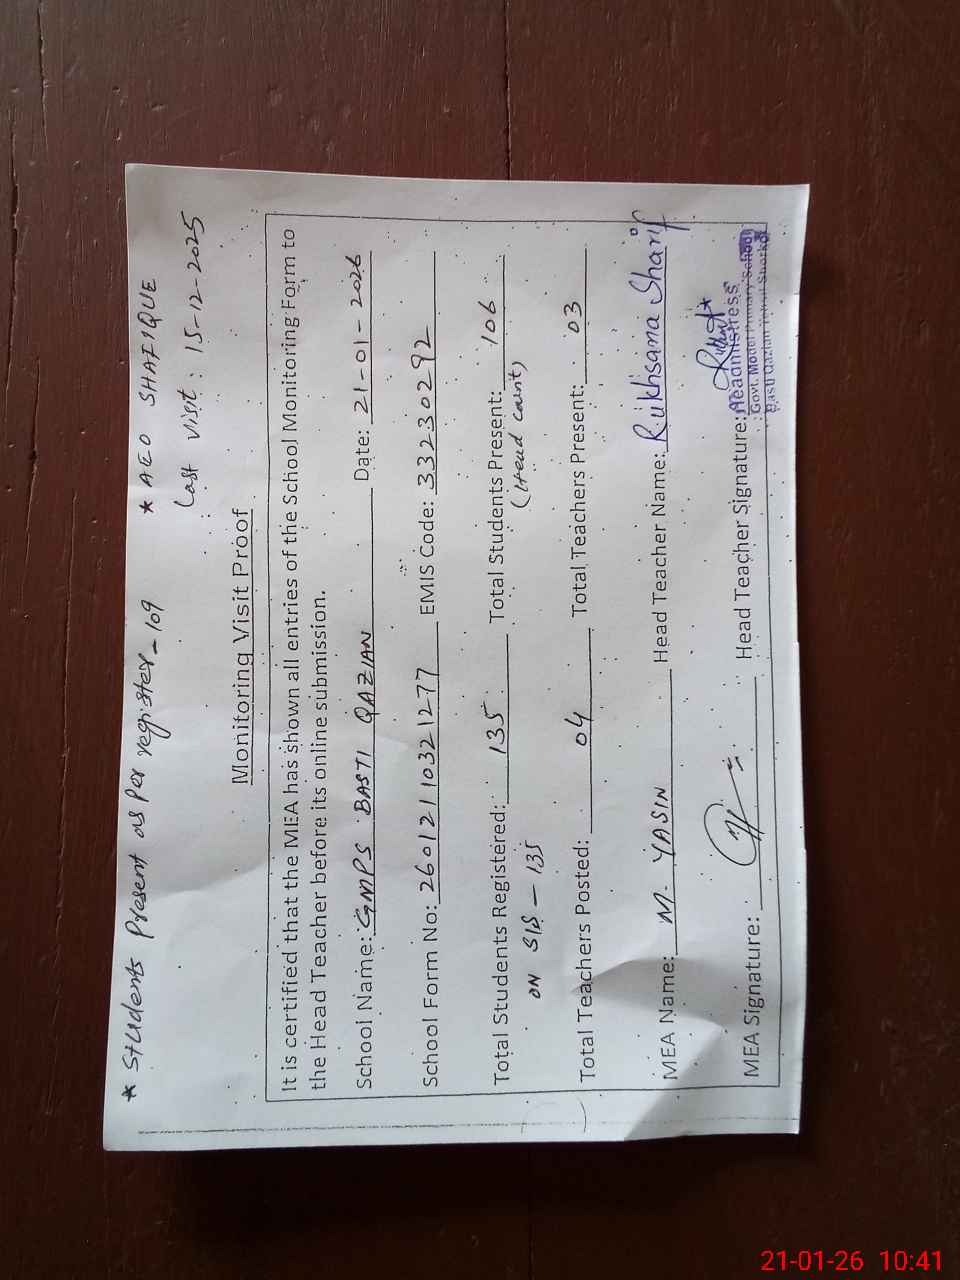 * Students Present as Per register - 109 * AEO SHAFIQUE
Last visit : 15-12-2025
Monitoring Visit Proof
It is certified that the MEA has shown all entries of the School Monitoring Form to
the Head Teacher before its online submission.
School Name: GMPS BASTI QAZIAN Date: 21-01-2026
School Form No: 2601211032 1277 EMIS Code: 33230292
Total Students Registered: 135 Total Students Present: 106
ON SIS - 135 (Head count)
Total Teachers Posted: 04 Total Teachers Present: 03
MEA Name: M. YASIN Head Teacher Name: Rukhsana Sharif
MEA Signature: Head Teacher Signature:
Headmistress
Govt. Model Primary School
Basti Qazian Tehsil Shorkot
21-01-26 10:41